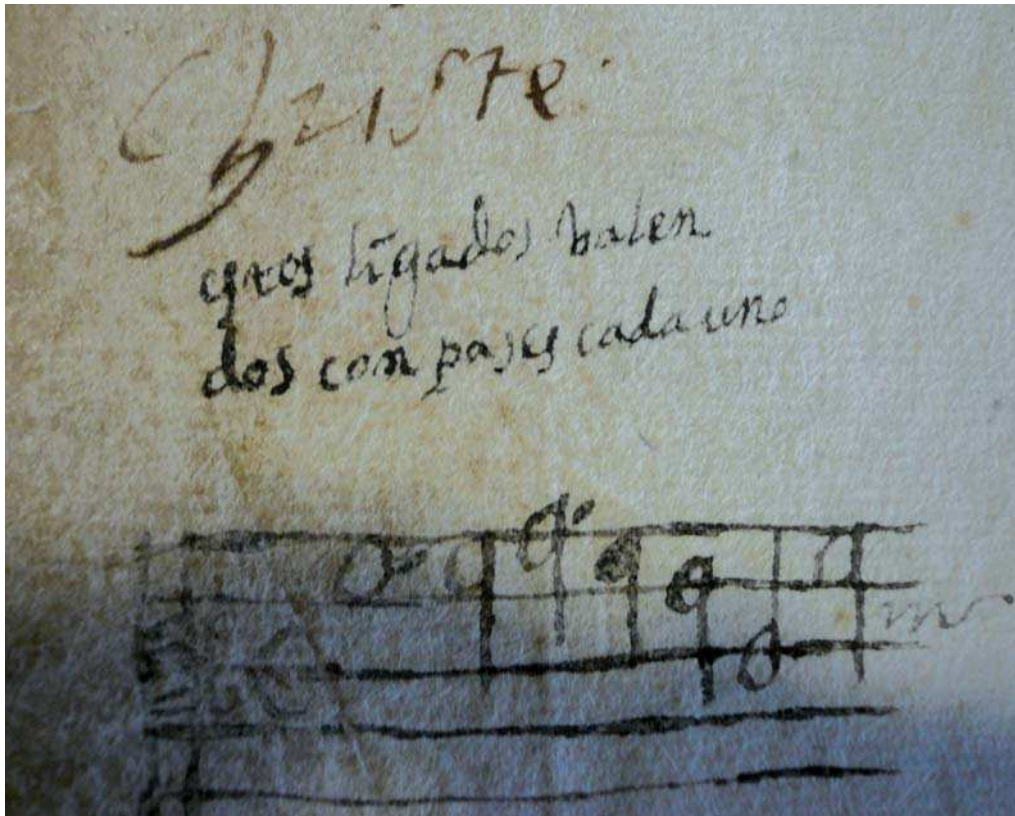 Christe.
yros ligados valen
dos conpases cada uno